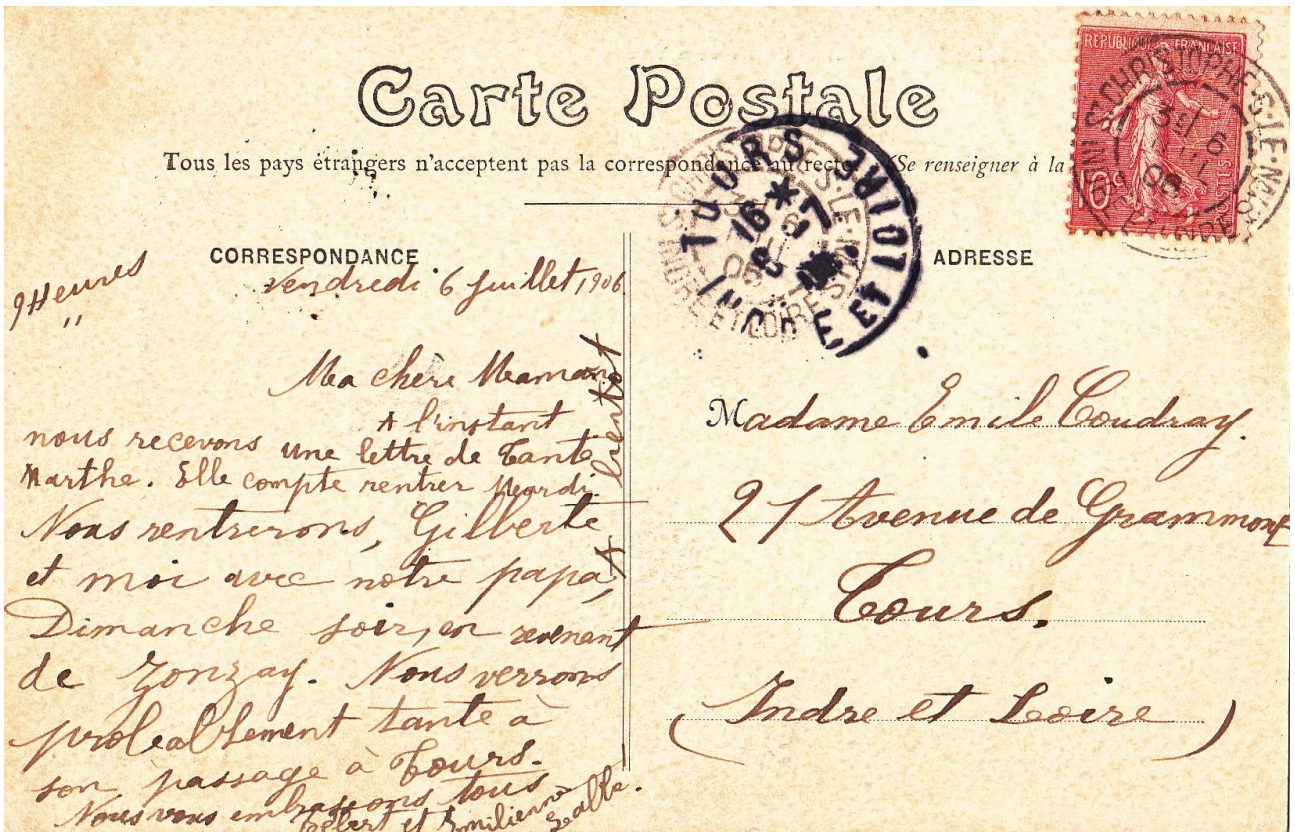 Carte Postale
Tous les pays étrangers n'acceptent pas la correspondance au recto (Se renseigner à la
REPUBLIQUE FRANÇAISE
10c
POSTES
ST CHRISTOPHE-S-LE-NAIS
INDRE ET LOIRE
6
06
TOURS
INDRE ET LOIRE
16 * 7
CORRESPONDANCE
ADRESSE
9 Heures
"
Vendredi 6 Juillet 1906
Ma chère Maman
A l'instant
nous recevons une lettre de Tante
Marthe. Elle compte rentrer Mardi.
Nous rentrerons, Gilberte
et moi avec notre papa,
Dimanche soir, en revenant
de Jonzay. Nous verrons
probablement tante à
son passage à Tours.
Nous vous embrassons tous
et Emilienne
A bientôt
Madame Emile Coudray.
21 Avenue de Grammont
Tours.
(Indre et Loire)